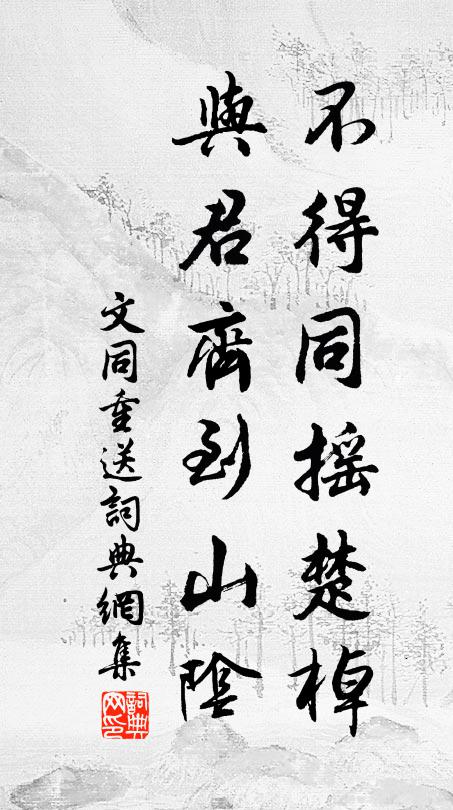 不得同摇楚棹
與君齊到山陰
文同重送詞典網集
詞典網印